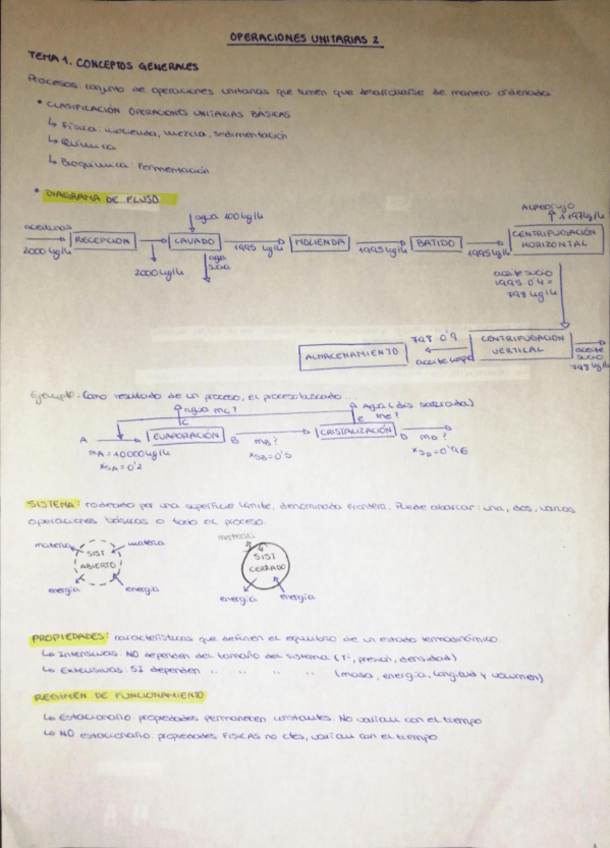 OPERACIONES UNITARIAS 2
TEMA 1. CONCEPTOS GENERALES
Procesos: conjunto de operaciones unitarias que tienen que desarrollarse de manera ordenada
• CLASIFICACIÓN OPERACIONES UNITARIAS BÁSICAS
↳ Física: molienda, mezcla, sedimentación
↳ Química
↳ Bioquímica: Fermentación
• DIAGRAMA DE FLUJO
aceitunas
2000 kg/h
RECEPCIÓN
2000 kg/h
agua 100 kg/h
LAVADO
agua
sucia
1995 kg/h
MOLIENDA
1995 kg/h
BATIDO
1995 kg/h
ALPEORUJO
1197 kg/h
CENTRIFUGACIÓN
HORIZONTAL
aceite sucio
1995 0'4 =
798 kg/h
CENTRIFUGACIÓN
VERTICAL
aceite
sucio
798 kg/h
798 0'9
aceite limpio
ALMACENAMIENTO
Ejemplo: Como resultado de un proceso, el proceso buscado...
agua mc?
Agua (dis. saturada)
mE?
C
E
A
EVAPORACIÓN
B
mB?
CRISTALIZACIÓN
D
mD?
mA = 10000 kg/h
XSA = 0'2
XSB = 0'5
XSD = 0'96
SISTEMA: rodeado por una superficie límite, denominada frontera. Puede abarcar: una, dos, varias
operaciones básicas o todo el proceso.
materia
materia
SIST
ABIERTO
energía
energía
materia
SIST
CERRADO
energía
energía
PROPIEDADES: características que definen el equilibrio de un estado termodinámico.
↳ Intensivas: NO dependen del tamaño del sistema (Tª, presión, densidad)
↳ Extensivas: SI dependen " " " " (masa, energía, longitud y volumen)
REGIMEN DE FUNCIONAMIENTO
↳ Estacionario: propiedades permanecen constantes. No varían con el tiempo
↳ NO estacionario: propiedades FISICAS no ctes, varían con el tiempo